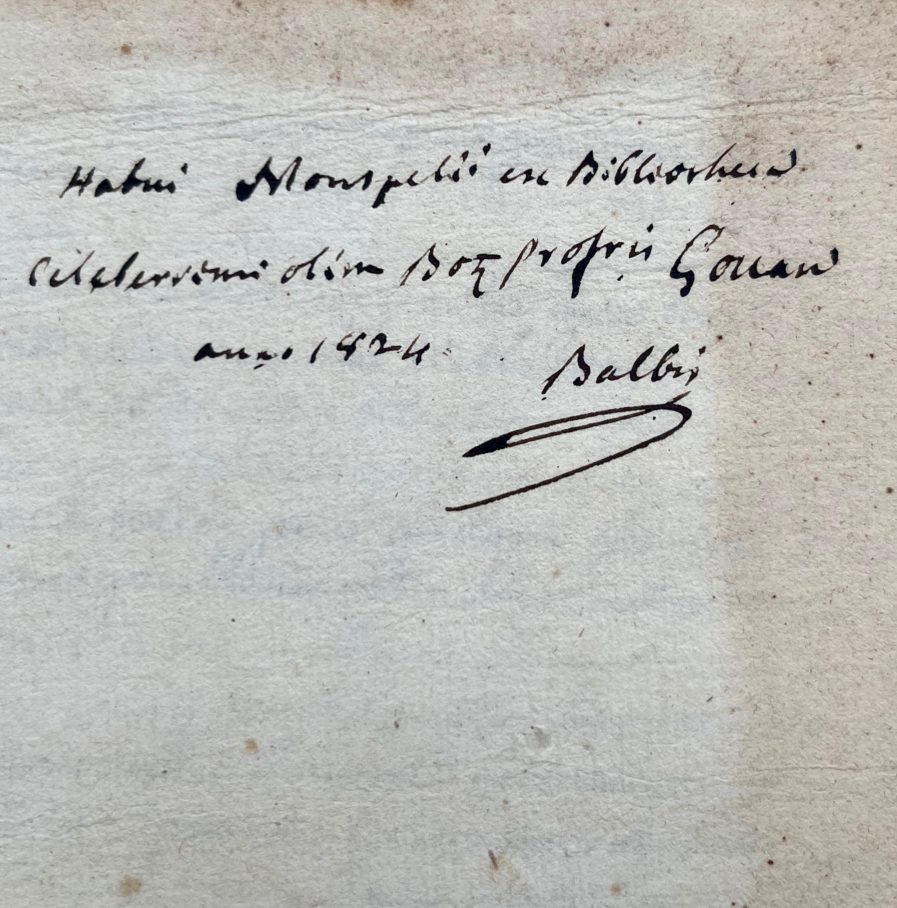 Habui Monspelii ex Bibliotheca
Celeberrimi olim Bot. profris Gouan
anno 1824
Balbis